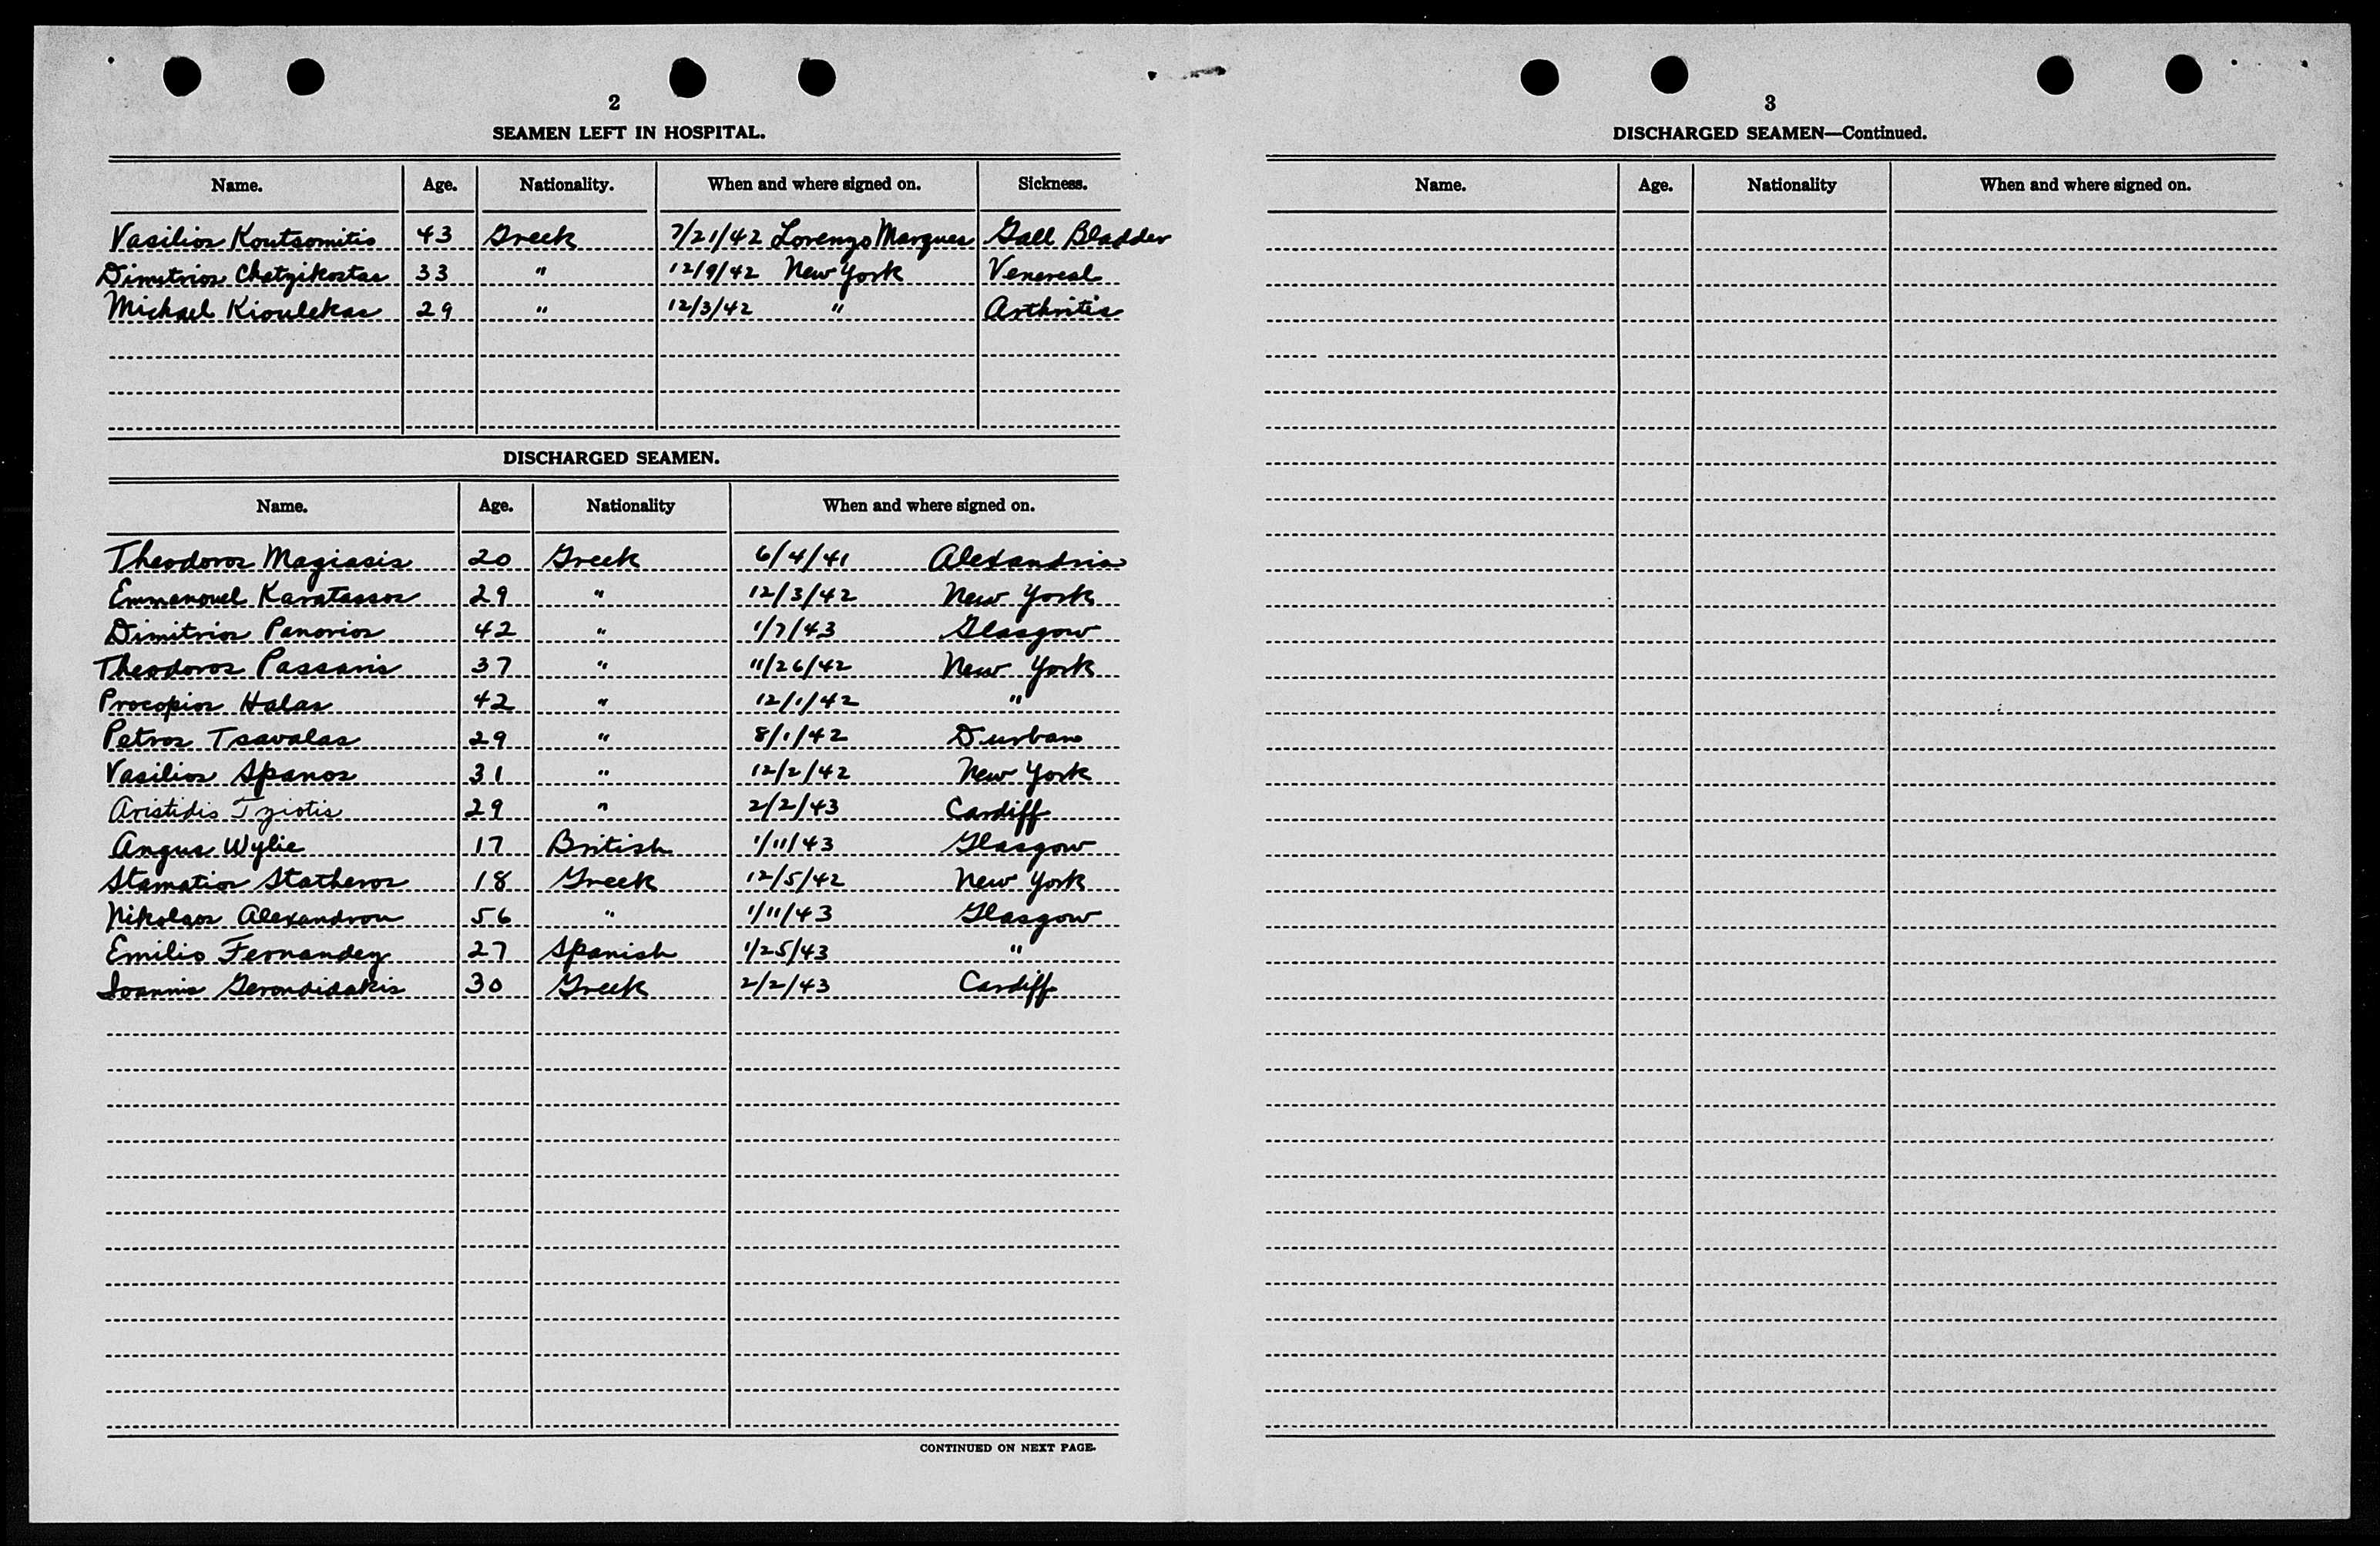 2
SEAMEN LEFT IN HOSPITAL.
Name. Age. Nationality. When and where signed on. Sickness.
Vasilios Koutsomitis 43 Greek 7/21/42 Lorenzo Marques Gall Bladder
Dimitrios Chatzikostas 33 " 12/9/42 New York Venereal
Michael Kioulekas 29 " 12/3/42 " Arthritis
DISCHARGED SEAMEN.
Name. Age. Nationality When and where signed on.
Theodoros Magiasis 20 Greek 6/4/41 Alexandria
Emmanouel Karatassos 29 " 12/3/42 New York
Dimitrios Panorios 42 " 1/7/43 Glasgow
Theodoros Passaris 37 " 11/26/42 New York
Procopios Halas 42 " 12/1/42 "
Petros Tsavalas 29 " 8/1/42 Durban
Vasilios Spanos 31 " 12/2/42 New York
Aristidis Tziotis 29 " 2/2/43 Cardiff
Angus Wylie 17 British 1/11/43 Glasgow
Stamatios Statheros 18 Greek 12/5/42 New York
Nikolaos Alexandrou 56 " 1/11/43 Glasgow
Emilio Fernandez 27 Spanish 1/25/43 "
Ioannis Gerondidakis 30 Greek 2/2/43 Cardiff
CONTINUED ON NEXT PAGE.
3
DISCHARGED SEAMEN—Continued.
Name. Age. Nationality When and where signed on.